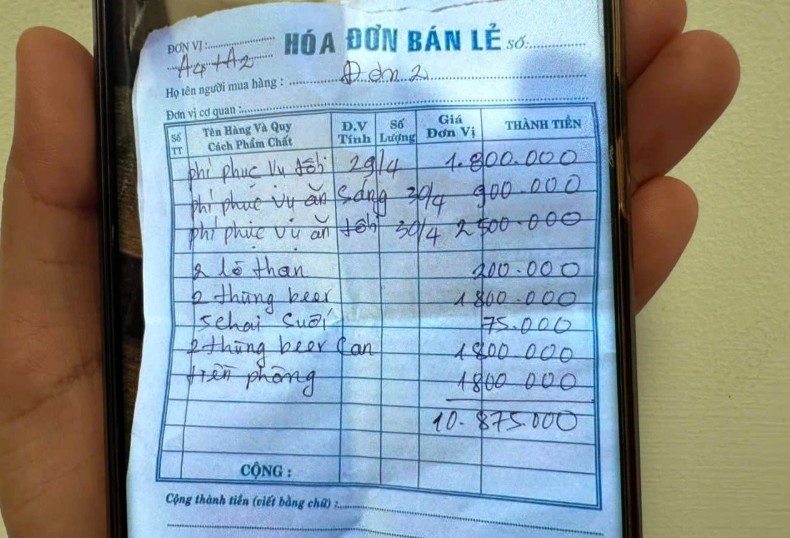 ĐƠN VỊ: HÓA ĐƠN BÁN LẺ SỐ:
A4+A2
Họ tên người mua hàng : Đơn 2
Đơn vị cơ quan :
Số TT Tên Hàng Và Quy Cách Phẩm Chất Đ.V Tính Số Lượng Giá Đơn Vị THÀNH TIỀN
phí phục vụ tối 29/4 1.800.000
phí phục vụ ăn sáng 30/4 900.000
phí phục vụ ăn tối 30/4 2500.000
2 lò than 200.000
2 thùng beer 1800.000
5 chai suối 75.000
2 thùng beer Can 1800.000
tiền phòng 1800.000
10.875.000
CỘNG :
Cộng thành tiền (viết bằng chữ) :